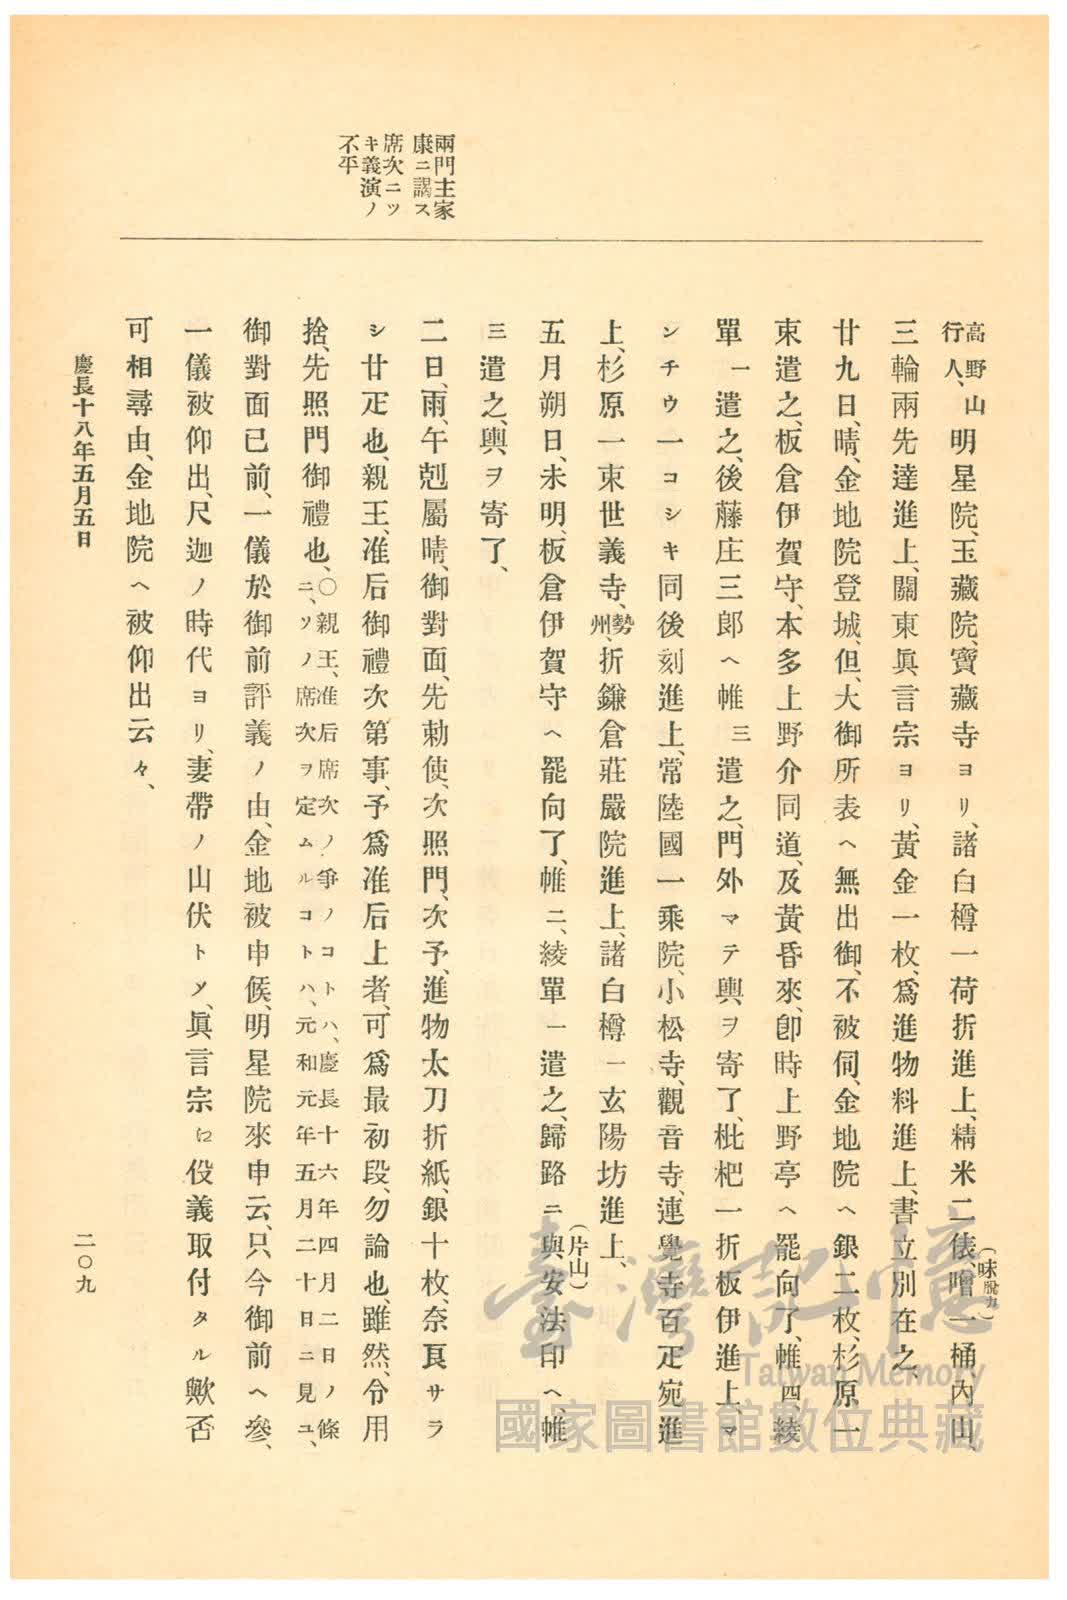 兩門主家
康ニ謁ス
席次ニツ
キ義演ノ
不平
高野山
行人、明星院、玉藏院、寶藏寺ヨリ、諸白樽一荷折進上、精米二俵、噌一桶內山、
(味脫カ)
三輪兩先達進上、關東眞言宗ヨリ、黃金一枚、爲進物料進上、書立別在之、
廿九日、晴、金地院登城、但、大御所表ヘ無出御、不被伺、金地院ヘ銀二枚、杉原一
束遣之、板倉伊賀守、本多上野介同道、及黃昏來、卽時上野亭ヘ罷向了、帷四、綾
單一遣之、後藤庄三郞ヘ帷三遣之、門外マテ輿ヲ寄了、枇杷一折板伊進上、マ
ンチウ一コシキ同後刻進上、常陸國一乘院、小松寺、觀音寺、連覺寺百疋宛進
上、杉原一束世義寺、勢州、折鎌倉莊嚴院進上、諸白樽一玄陽坊進上、
五月朔日、未明、板倉伊賀守ヘ罷向了、帷二、綾單一遣之、歸路ニ與安法印ヘ、帷
(片山)
三遣之、輿ヲ寄了、
二日、雨、午剋屬晴、御對面、先勅使、次照門、次予、進物太刀折紙、銀十枚、奈良サラ
シ廿疋也、親王、准后御禮次第事、予爲准后上者、可爲最初段、勿論也、雖然、今用
捨、先照門御禮也、
〇親王、准后席次ノ爭ノコトハ、慶長十六年四月二日ノ條
ニ、ソノ席次ヲ定ムルコトハ、元和元年五月二十日ニ見ユ、
御對面已前、一儀於御前評義ノ由、金地被申候、明星院來申云、只今御前ヘ參、
一儀被仰出、尺迦ノ時代ヨリ、妻帶ノ山伏トメ、眞言宗ロ伇義取付タル歟否
可相尋由、金地院ヘ被仰出云々、
慶長十八年五月五日
二〇九
臺灣記憶
Taiwan Memory
國家圖書館數位典藏